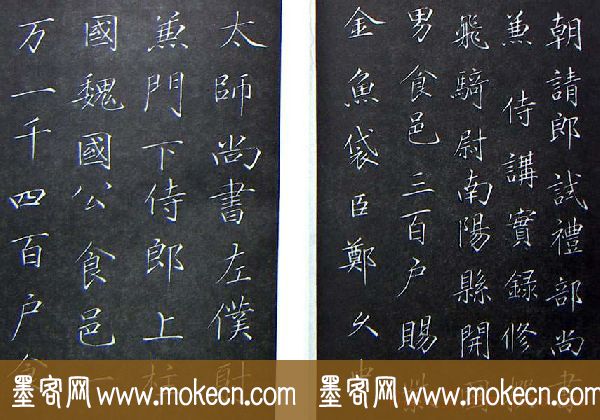 朝請郎試禮部尚書
兼侍講實録修撰
飛騎尉南陽縣開國
男食邑三百户賜紫
金魚袋臣鄭久中
太師尚書左僕射
兼門下侍郎上柱
國魏國公食邑一
万一千四百户食
墨客网 www.mokecn.com
墨客网 www.mokecn.com